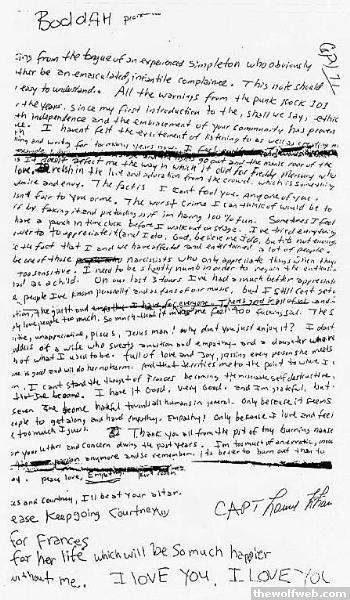 BoddAH
ing from the tongue of an experienced simpleton who obviously
ther be an emasculated, infantile complainee. This note should
easy to understand. All the warnings from the punk rock 101
the years. Since my first introduction to the, shall we say, ethic
th independence and the embracement of your community has proven
ue. I havent felt the excitement of listening to as well as
ing and writing for too many years now. I feel
it doesnt affect me the way in which it did for Freddy Mercury who
love, relish in the love and adoration from the crowd. which is something
admire and envy. The fact is I cant fool you. Anyone of you.
isnt fair to you or me. The worst crime I can think of would be to
by faking it and pretending as if im having 100% fun. Sometimes I feel
have a punch in time clock before I walk out on stage. Ive tried everything
to appreciate it (and I do, God, believe me I do, but its not enough
the fact that I and we have affected and entertained a lot of people,
be one of those narcissists who only appreciate things when they
too sensitive. I need to be slightly numb in order to regain the enthusia
had as a child. On our last 3 tours Ive had a much better appreciati
people Ive known personally and as fans of our music. but I still cant get
tion, the guilt and empathy I have for everyone. Theres good in all of us and
ly love people too much. So much that it makes me feel too fucking sad. The
itive, unappreciative, pisces, Jesus man! why dont you just enjoy it? I dont
goddess of a wife who sweats ambition and empathy and a daughter who re
h of what I used to be. full of love and joy, kissing every person she meets
is good and will do her no harm. And that terrifies me to the point to where I
n. I cant stand the thought of Frances becoming the miserable, self destructive,
that Ive become. I have it Good, very Good. and im grateful, but
seven Ive become hateful towards all humans in general. Only because it seems
eople to get along and have empathy. Empathy! Only because I love and feel
too much I guess. Thank you all from the pit of my burning nause
or your letters and concern during the past years. Im too much of an erratic, moo
passion anymore and so remember. its better to burn out than to
peace, love, Empathy. Kurt Cobain
es and Courtney, Ill be at your altar.
ease Keep going Courtney,
for Frances
for her life which will be so much happier
without me. I LOVE YOU, I LOVE YOU
thewolfweb.com